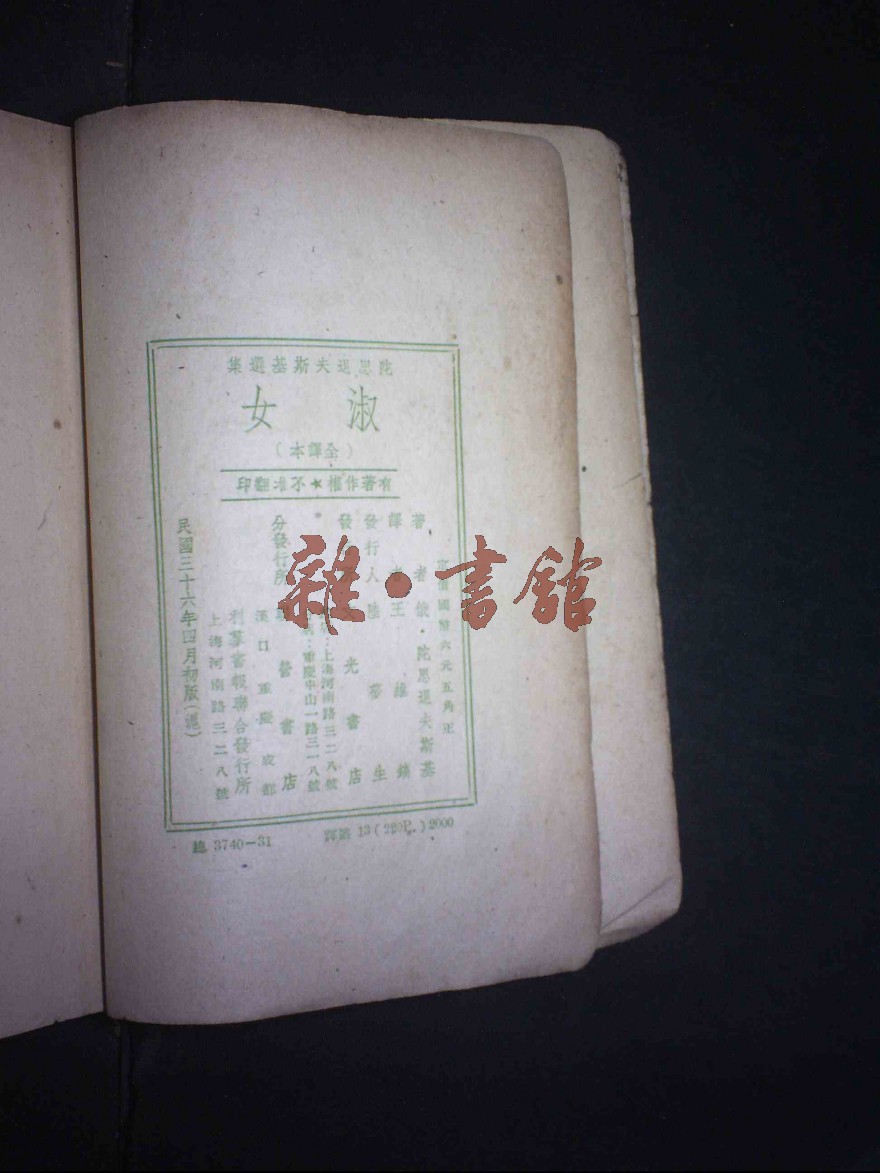 陀思退夫斯基選集
淑女
（全譯本）
有著作權★不准翻印
定價國幣六元五角正
著者俄・陀思退夫斯基
譯者王維鎬
發行人陸夢生
發 光書店
：上海河南路三二八號
：重慶中山一路三一八號
分發行所 聯營書店
漢口重慶成都
利羣書報聯合發行所
上海河南路三二八號
民國三十六年四月初版（滬）
總 3740-31
13（220P.）2000
雜・書館